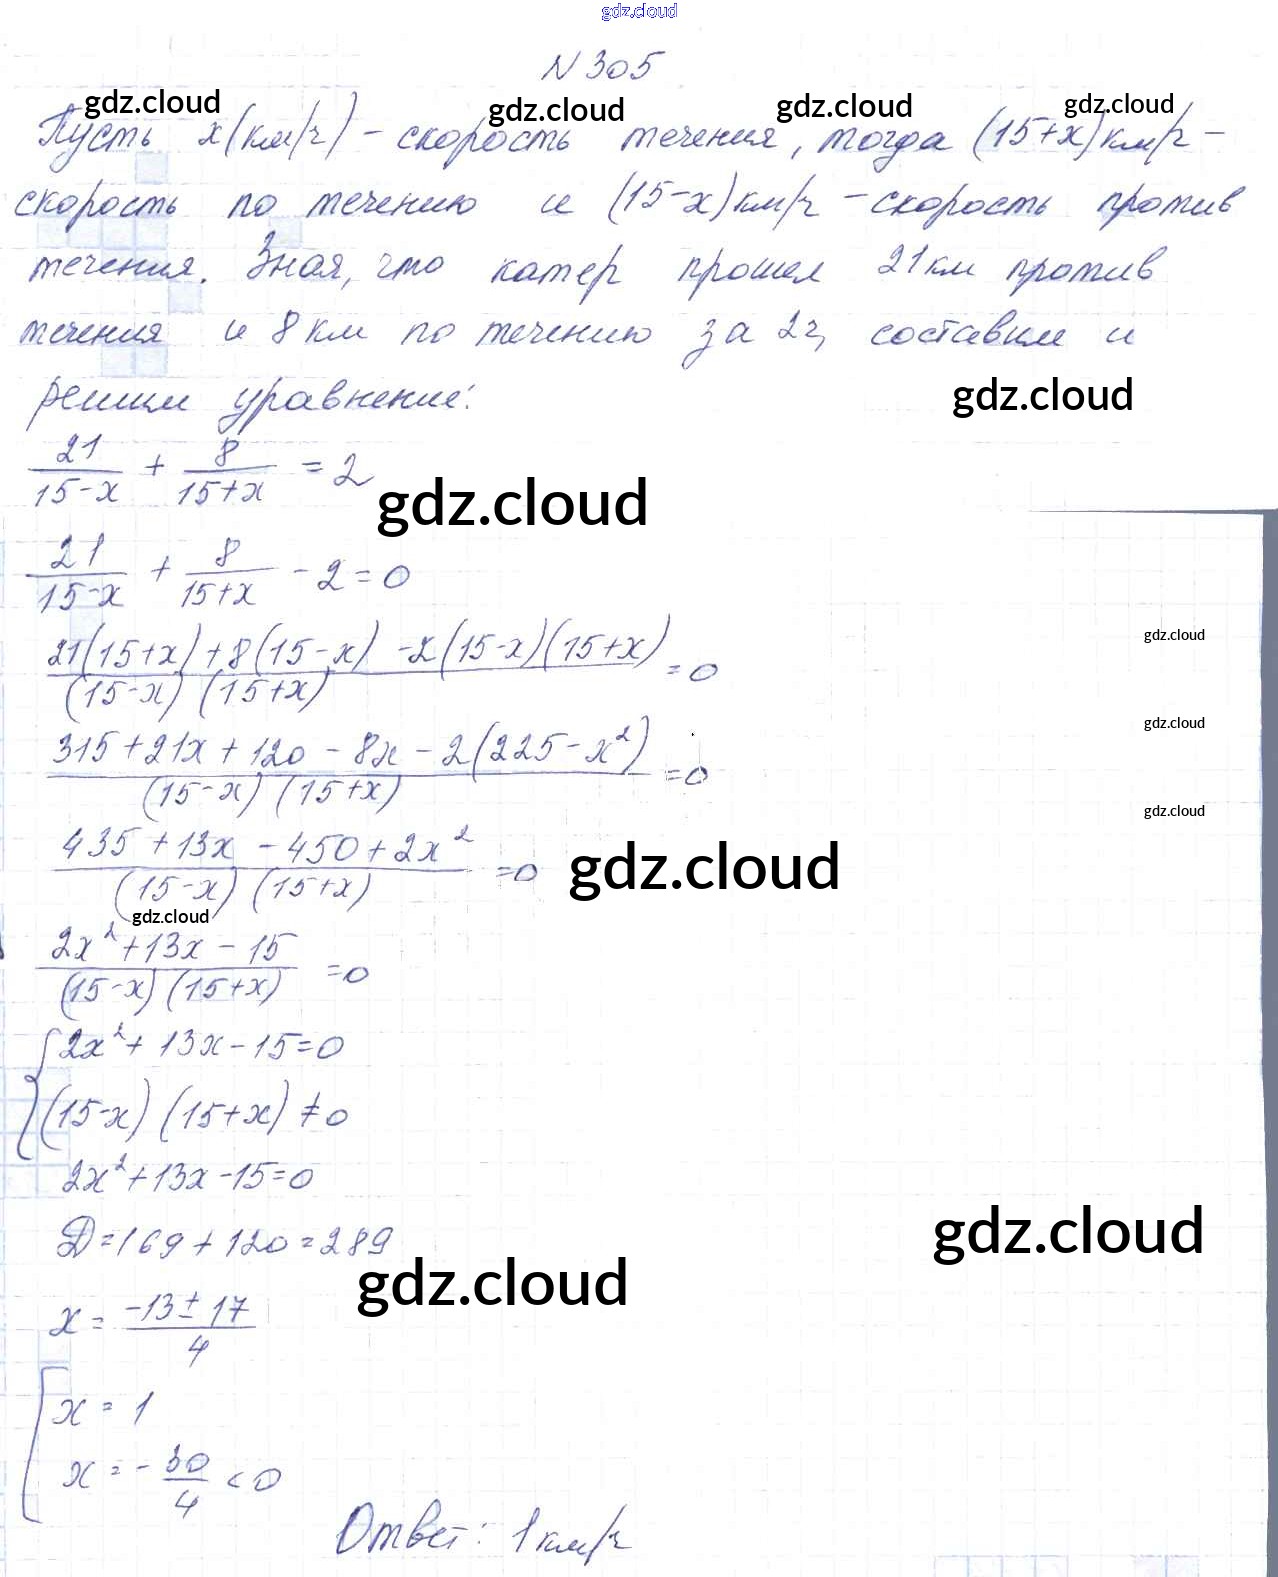 gdz.cloud
N 305
gdz.cloud gdz.cloud gdz.cloud gdz.cloud
Пусть x(км/ч) - скорость течения, тогда (15+x) км/ч -
скорость по течению и (15-x) км/ч - скорость против
течения. Зная, что катер прошел 21 км против
течения и 8 км по течению за 2ч, составим и
решим уравнение:
gdz.cloud
21/(15-x) + 8/(15+x) = 2
gdz.cloud
21/(15-x) + 8/(15+x) - 2 = 0
gdz.cloud
(21(15+x)+8(15-x)-2(15-x)(15+x))/((15-x)(15+x)) = 0
gdz.cloud
(315+21x+120-8x-2(225-x²))/((15-x)(15+x)) = 0
gdz.cloud
(435+13x-450+2x²)/((15-x)(15+x)) = 0
gdz.cloud
gdz.cloud
(2x²+13x-15)/((15-x)(15+x)) = 0
{ 2x²+13x-15=0
(15-x)(15+x)≠0
2x²+13x-15=0
D=169+120=289
gdz.cloud
gdz.cloud
x = (-13±17)/4
[ x = 1
x = -30/4 < 0
Ответ: 1 км/ч